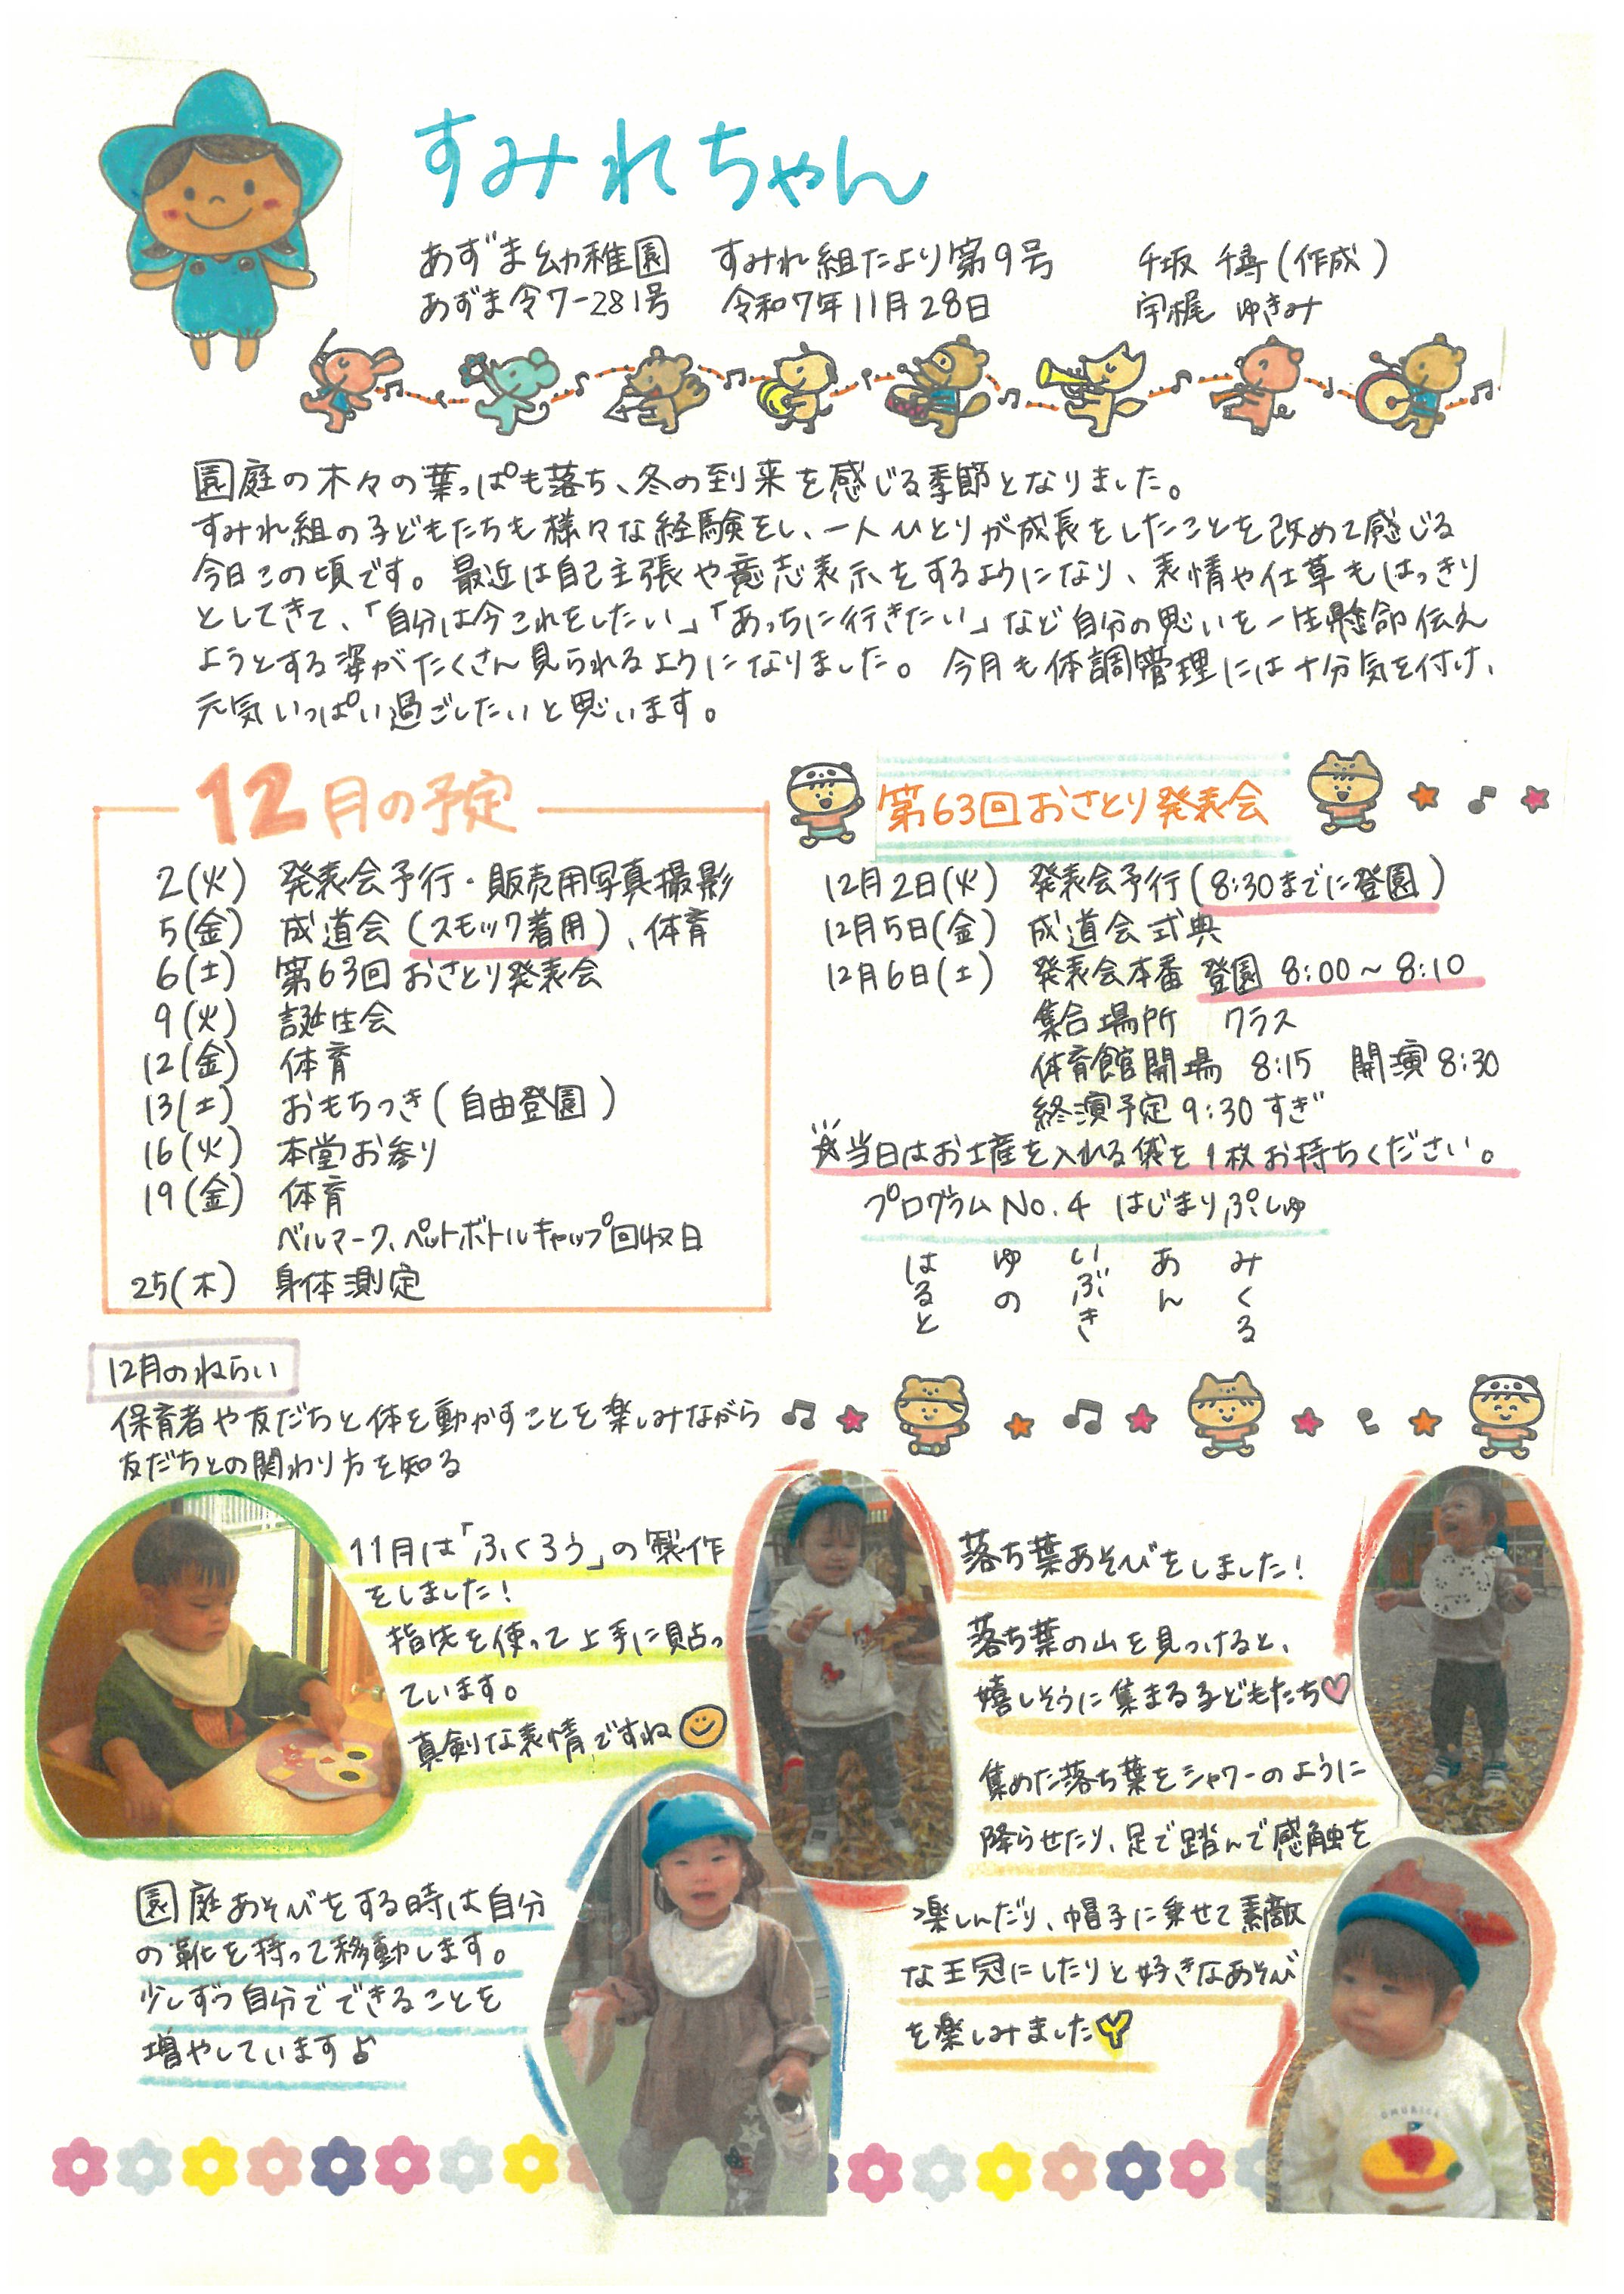 すみれちゃん
あずま幼稚園 すみれ組たより第9号 千坂 千尋(作成)
あずま令7-281号 令和7年11月28日 宇梶 ゆきみ
園庭の木々の葉っぱも落ち、冬の到来を感じる季節となりました。
すみれ組の子どもたちも様々な経験をし、一人ひとりが成長をしたことを改めて感じる
今日この頃です。最近は自己主張や意志表示をするようになり、表情や仕草もはっきり
としてきて、「自分は今これをしたい」「あっちに行きたい」など自分の思いを一生懸命伝え
ようとする姿がたくさん見られるようになりました。今月も体調管理には十分気を付け、
元気いっぱい過ごしたいと思います。
12月の予定
2(火) 発表会予行・販売用写真撮影
5(金) 成道会(スモック着用)、体育
6(土) 第63回おさとり発表会
9(火) 誕生会
12(金) 体育
13(土) おもちつき(自由登園)
16(火) 本堂お参り
19(金) 体育
ベルマーク、ペットボトルキャップ回収日
25(木) 身体測定
第63回おさとり発表会
12月2日(火) 発表会予行(8:30までに登園)
12月5日(金) 成道会式典
12月6日(土) 発表会本番 登園 8:00~8:10
集合場所 クラス
体育館開場 8:15 開演8:30
終演予定9:30すぎ
☆当日はお土産を入れる袋を1枚お持ちください。
プログラムNo.4 はじまりぷしゅ
みくる
あん
いぶき
ゆの
はると
12月のねらい
保育者や友だちと体を動かすことを楽しみながら
友だちとの関わり方を知る
11月は「ふくろう」の製作
をしました!
指先を使って上手に貼っ
ています。
真剣な表情ですね
園庭あそびをする時は自分
の靴を持って移動します。
少しずつ自分でできることを
増やしています♪
落ち葉あそびをしました!
落ち葉の山を見つけると、
嬉しそうに集まる子どもたち♡
集めた落ち葉をシャワーのように
降らせたり、足で踏んで感触を
楽しんだり、帽子に乗せて素敵
な王冠にしたりと好きなあそび
を楽しみました